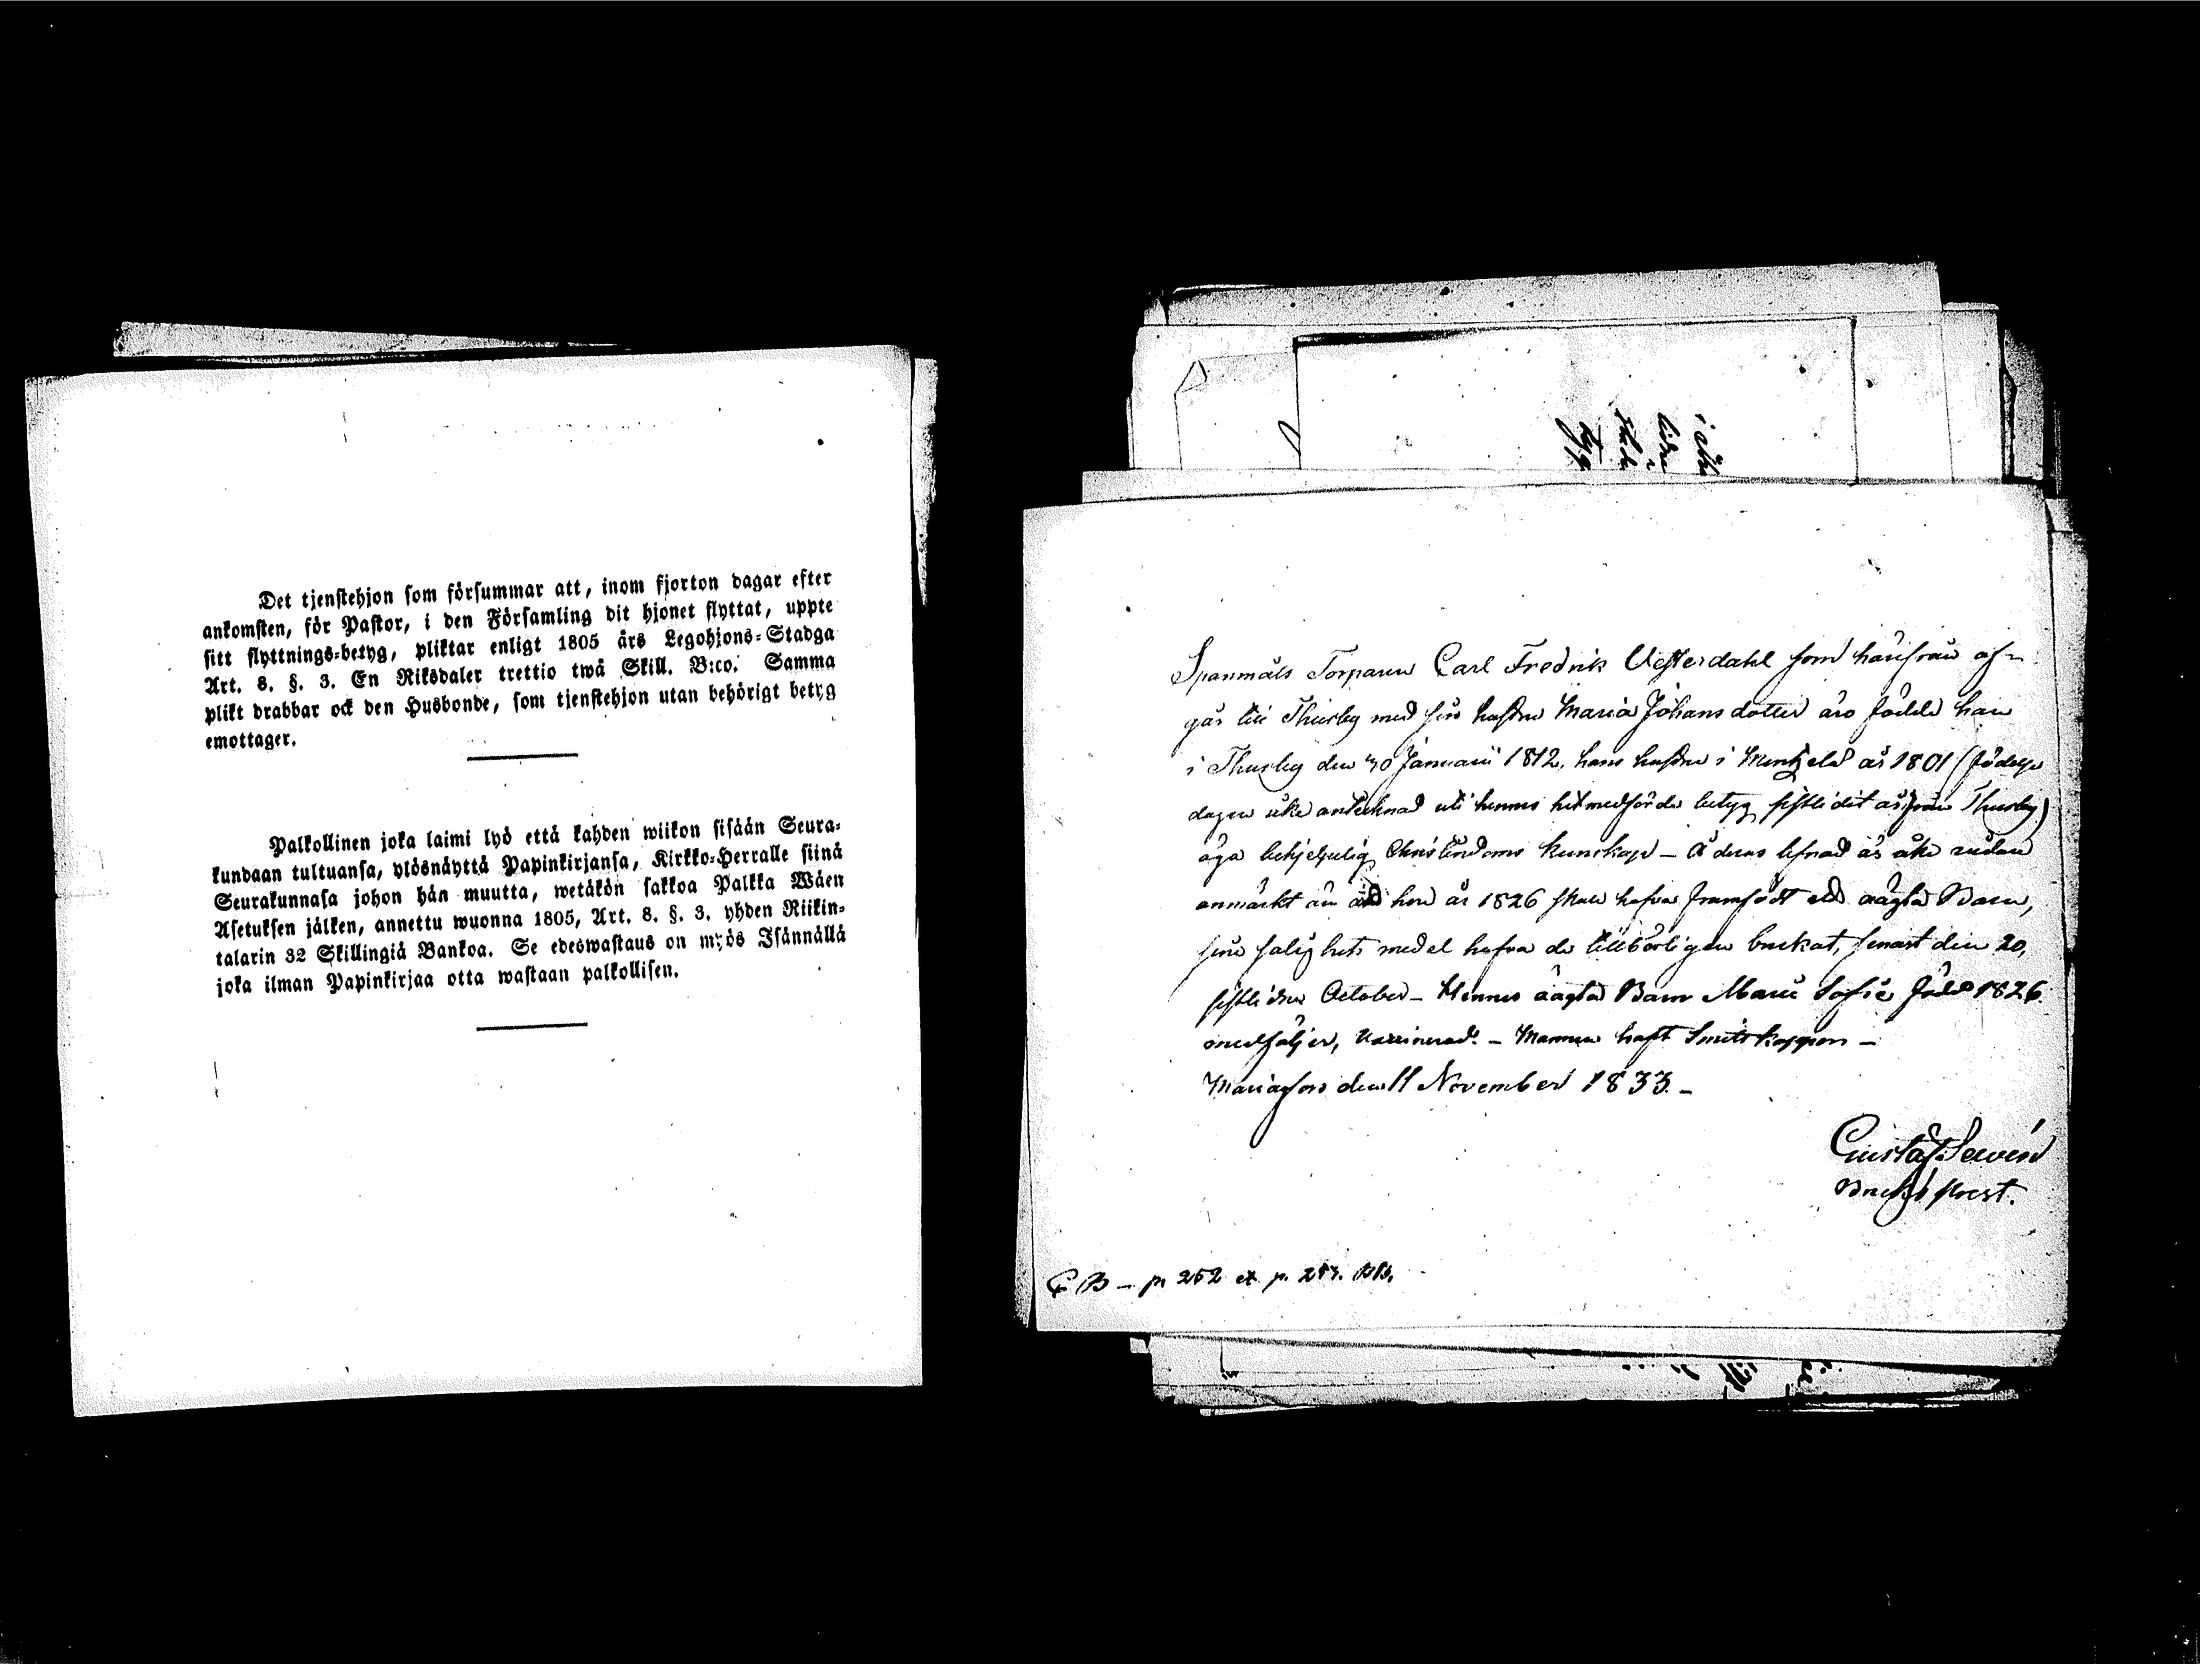 Det tjenstehjon som försummar att, inom fjorton dagar efter
ankomsten, för Pastor, i den Församling dit hjonet flyttat, uppte
sitt flyttnings-betyg, pliktar enligt 1805 års Legohjons-Stadga
Art. 8. §. 3. En Riksdaler trettio twå Skill. B:co. Samma
plikt drabbar ock den Husbonde, som tjenstehjon utan behörigt betyg
emottager.
Palkollinen joka laimi lyö että kahden wiikon sisään Seura-
kundaan tultuansa, ylösnäyttä Papinkirjansa, Kirkko-Herralle siinä
Seurakunnasa johon hän muutta, wetäkön sakkoa Palkka Wäen
Asetuksen jälken, annettu wuonna 1805, Art. 8. §. 3. yhden Riikin-
talarin 32 Skillingiä Bankoa. Se edeswastaus on myös Isännällä
joka ilman Papinkirjaa otta wastaan palkollisen.
Spanmåls Torparen Carl Fredrik Westerdahl som härifrån af-
går till Thusby med sin hustru Maria Johansdotter äro födde han
i Thusby den 30 Januarii 1812, hans hustru i år 1801 (födelse
dagen icke antecknad uti hennes hitmedförde betyg sistledit år från Thusby)
äga behjelpelig Christendoms kunskap – Å deras lefnad är icke
anmärkt än att hon år 1826 skall hafva framfödt ett oägta Barn,
sina salighets medel hafva de tillbörligen brukat, senast den 20,
sistledne October – Hennes oägta Barn Maria Sofia född 1826.
medföljer, Vaccinerad. – Mannen haft Smittkoppor –
Mariæfors den 11 November 1833. –
Gustaf
Bruks Prest.
C B – p. 252 et p.